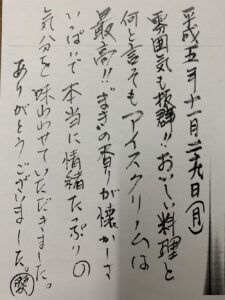 平成五年十一月二十九日(月)
雰囲気も抜群!!おいしい料理と
何と言ってもアイスクリームは
最高!!まきの香りが懐かしさ
いっぱいで本当に情緒たっぷりの
気分を味わわせていただきました。
ありがとうございました。